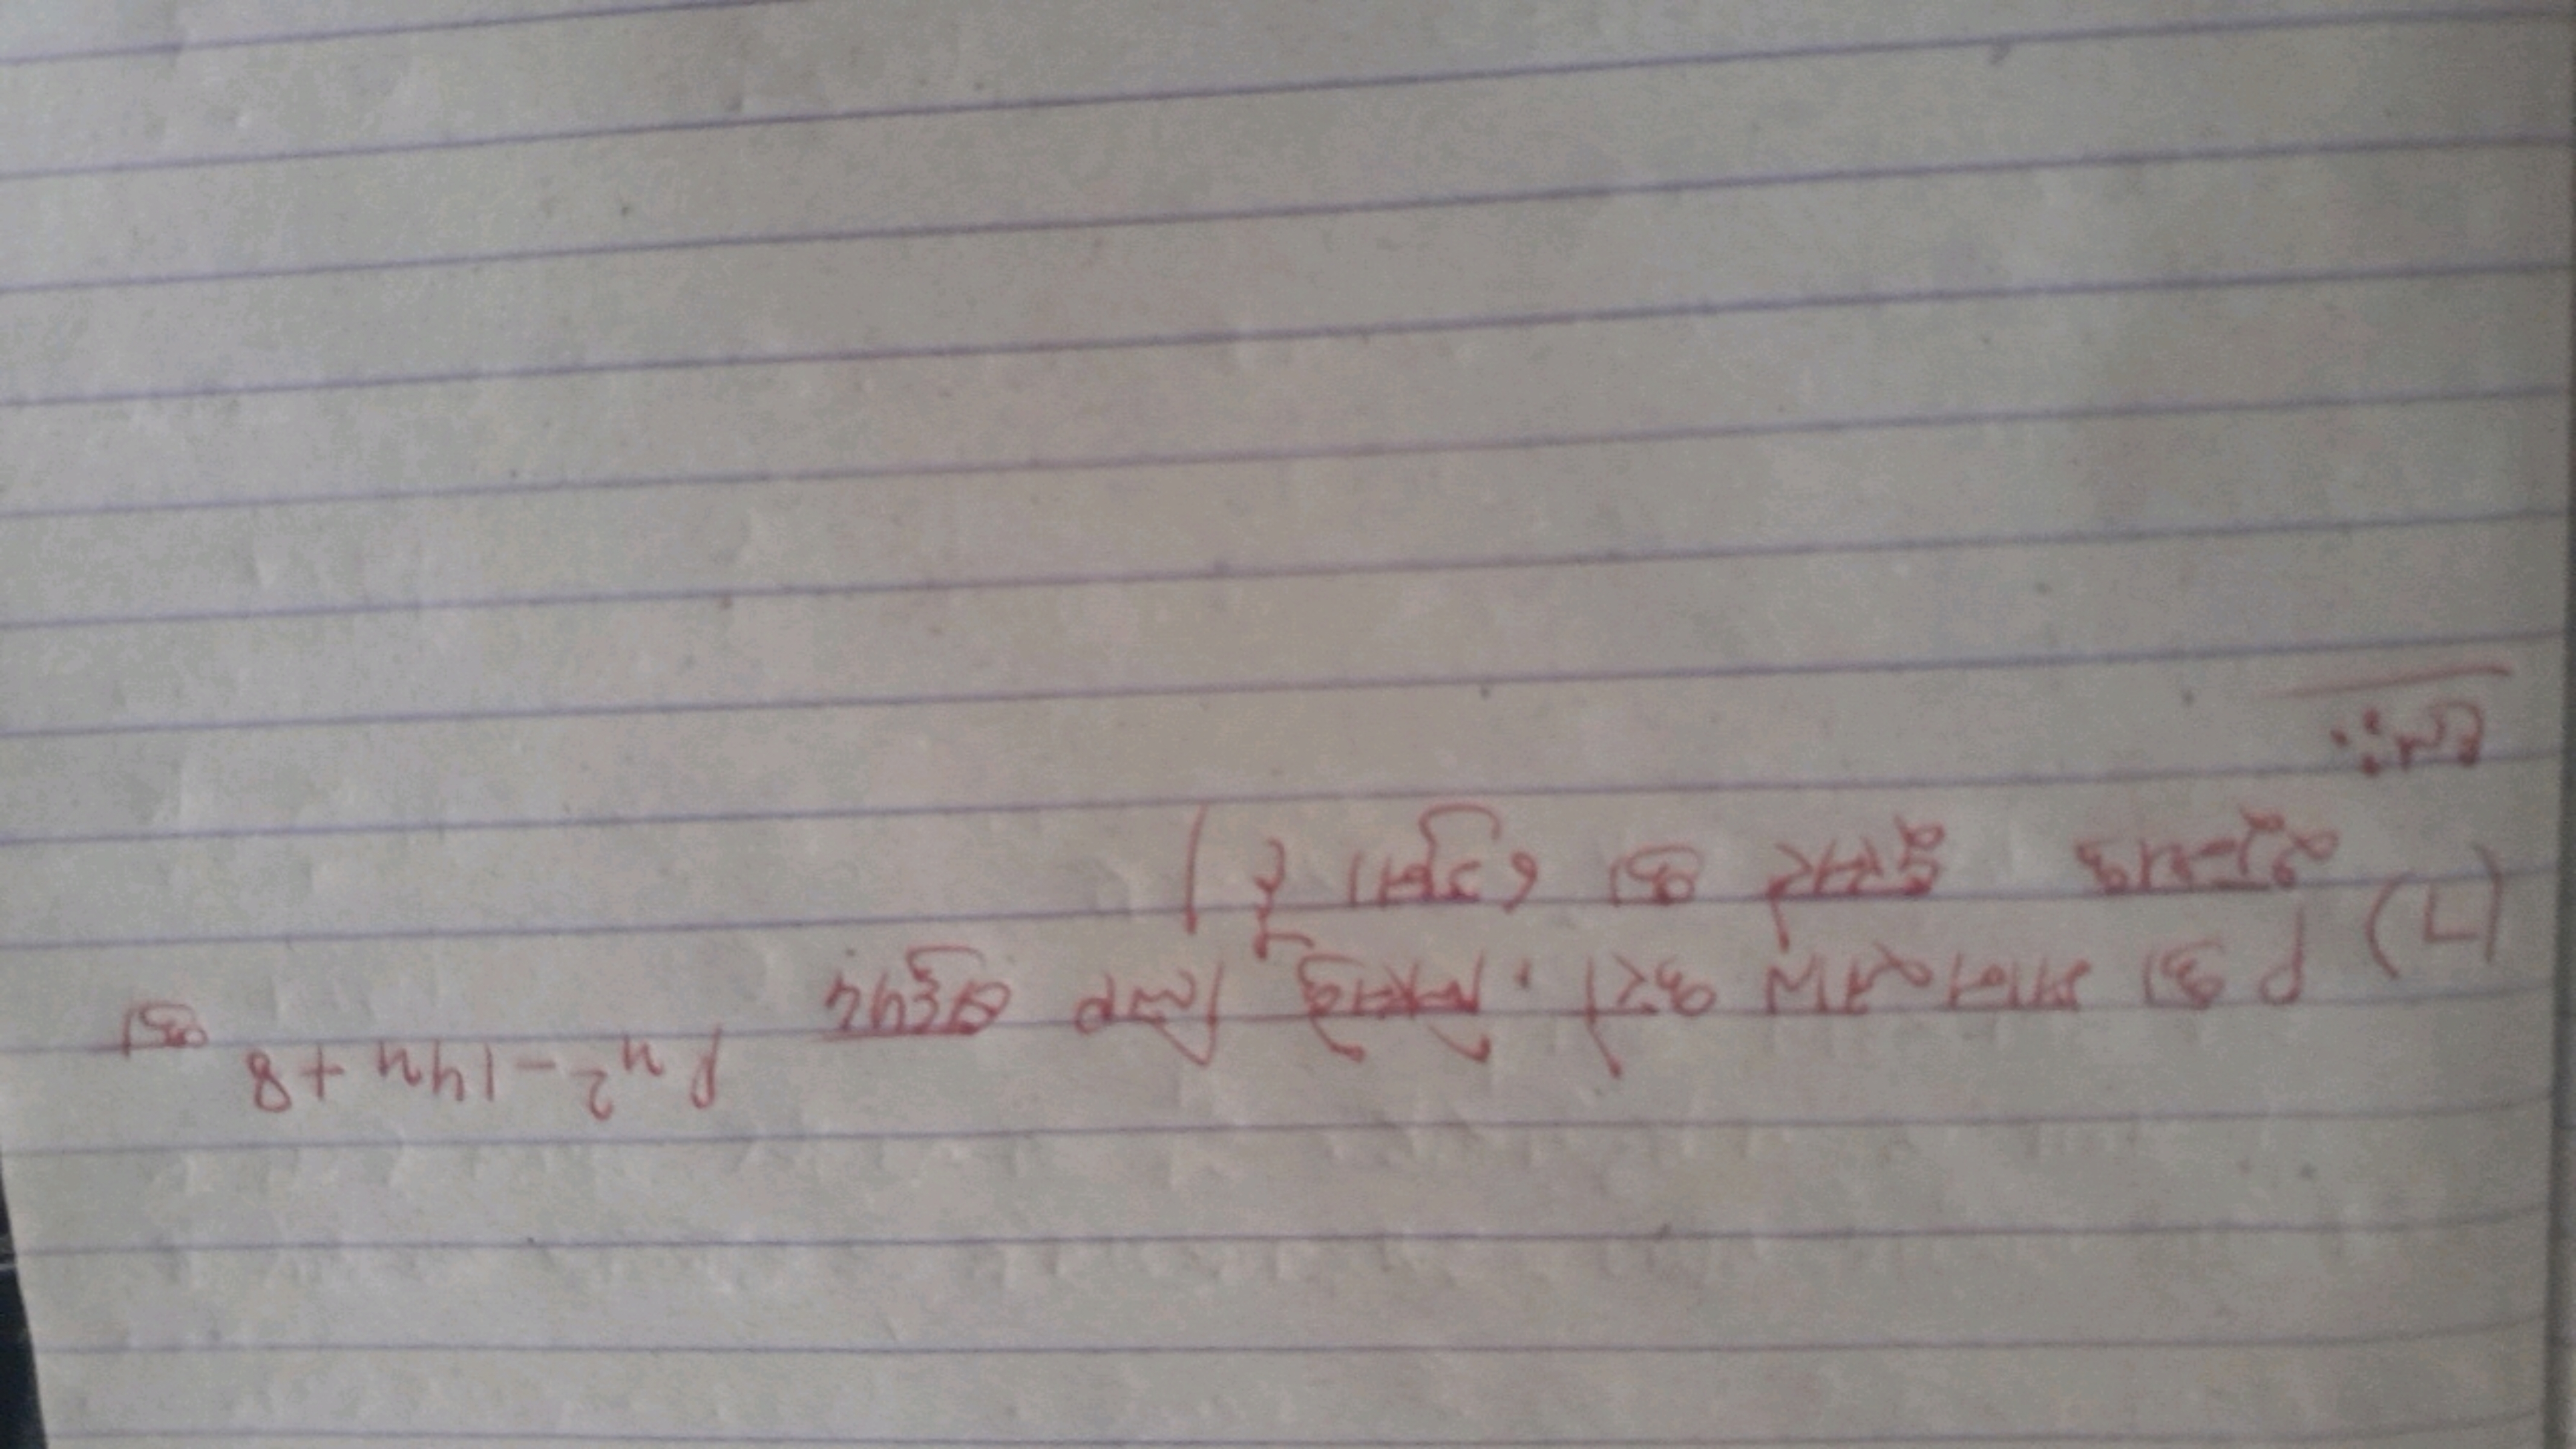 7) P का मान ज्ञात करें, जिसके लिए बहुपद Px²-14x+8 का
दूसरे का 6 गुना है |
हल:-